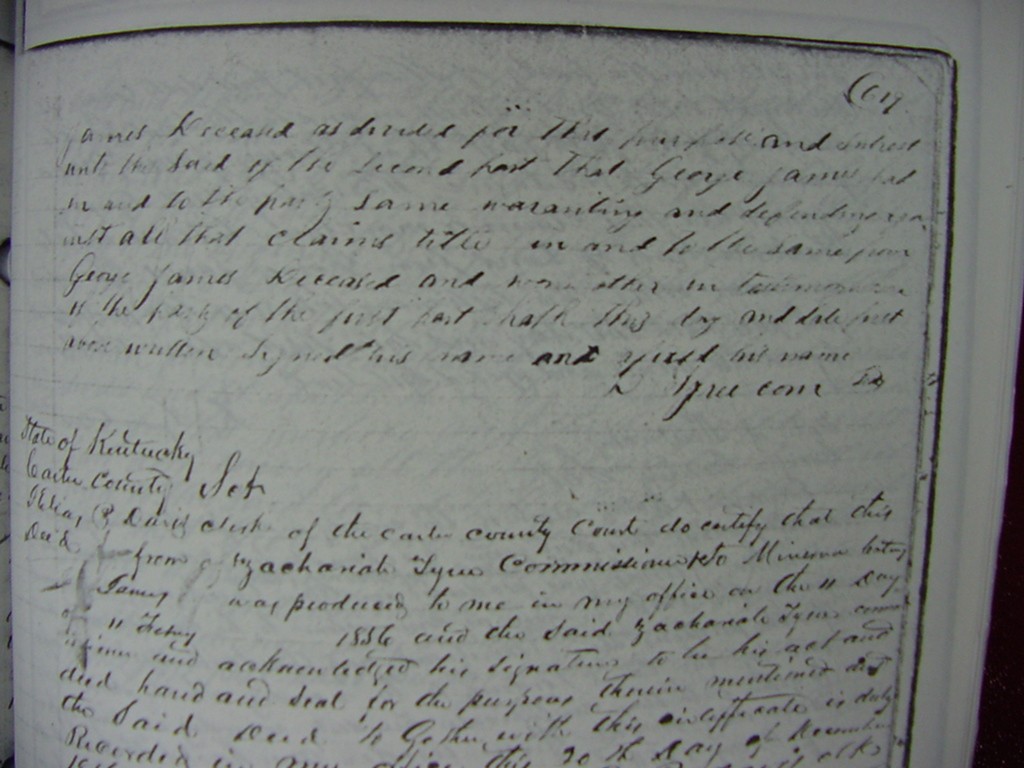 (619
James Deceased as decided for that purpose and interest
unto the Said of the Second part That George James had
in and to the party Same waranting and defending aga
inst all that claims title in and to the same from
George James Deceased and none other in Testimony
of the party of the first part hath this day and date first
above written Signed his name and affixd his name
Z Tyree com
State of Kentucky
Carter County Sct
I Elias P Davis clerk of the carter county Court do certify that this
Deed from Zachariah Tyree Commissioner to Minerva
James was produced to me in my office on the 11 day
of 1856 and the Said Zachariah Tyree comm
issioner and acknowledged his signature to be his act and
deed hand and Seal for the purposes therein mentioned and
the Said Deed to Gether with this certificate is duly
Recorded in my office this 20th Day of December